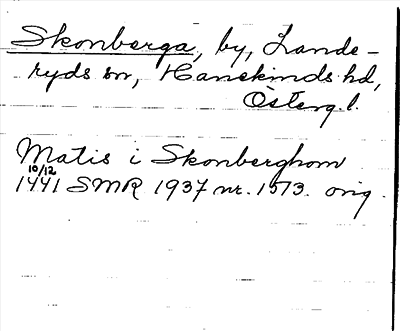 Skonberga, by, Lande-
ryds sn, Hanekinds hd,
Österg. l.
Matis i Skonberghom
10/12
1441 SMR 1937 nr. 1573. orig.